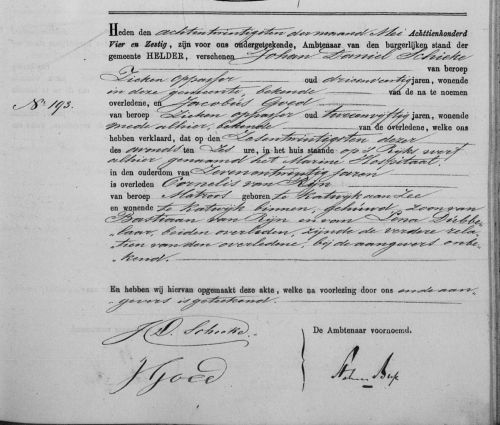 Heden den achtentwintigsten der maand Mei Achttienhonderd
Vier en Zestig, zijn voor ons ondergeteekende, Ambtenaar van den burgerlijken stand der
gemeente HELDER, verschenen Johan Daniel Schicke
van beroep
Zieken oppasser oud drieenveertig jaren, wonende
in deze gemeente, bekende van de na te noemen
overledene, en Jacobus Goed
N° 193.
van beroep Zieken oppasser oud tweeenvijftig jaren, wonende
mede alhier, bekende van de overledene, welke ons
hebben verklaard, dat op den Zesentwintigsten dezer
des avonds ten Zes ure, in het huis staande op 's Rijks werf
alhier genaamd het Marine Hospitaal
in den ouderdom van Zevenentwintig jaren
is overleden Cornelis van Rijn
van beroep Matroos geboren te Katwijk aan Zee
en wonende te Katwijk binnen, gehuwd, Zoon van
Bastiaan van Rijn en van Lena Dubbe-
laar, beiden overleden, zijnde de verdere rela-
tien van den overledene, bij de aangevers onbe-
kend.
En hebben wij hiervan opgemaakt deze akte, welke na voorlezing door ons en de aan-
gevers is geteekend.
J.D. Schicke.
De Ambtenaar voornoemd.
J Goed